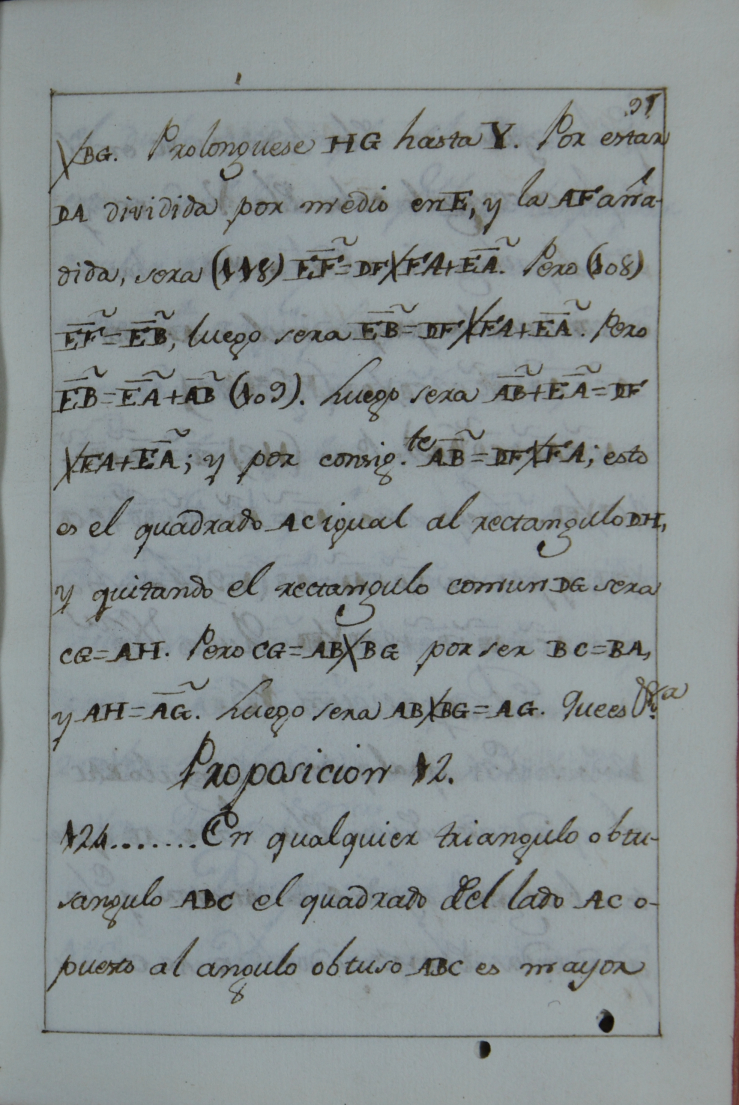 91
XBG. Prolonguese HG hasta Y. Por estar
DA dividida por medio en E, y la AF aña-
dida, sera (118) EF̃=DFXFA+EÃ. Pero (108)
EF̃=EB̃, luego sera EB̃=DFXFA+EÃ. Pero
EB̃=EÃ+AB̃ (109). Luego sera AB̃+EÃ=DF
XFA+EÃ; y por consig.te AB̃=DFXFA; esto
es el quadrado AC igual al rectangulo DH,
y quitando el rectangulo comun DG sera
CG=AH. Pero CG=ABXBG por ser BC=BA,
y AH=AG̃. Luego sera ABXBG=AG. Que es
Proposicion 12.
124.......En qualquier triangulo obtu-
sangulo ABC el quadrado del lado AC o-
puesto al angulo obtuso ABC es mayor